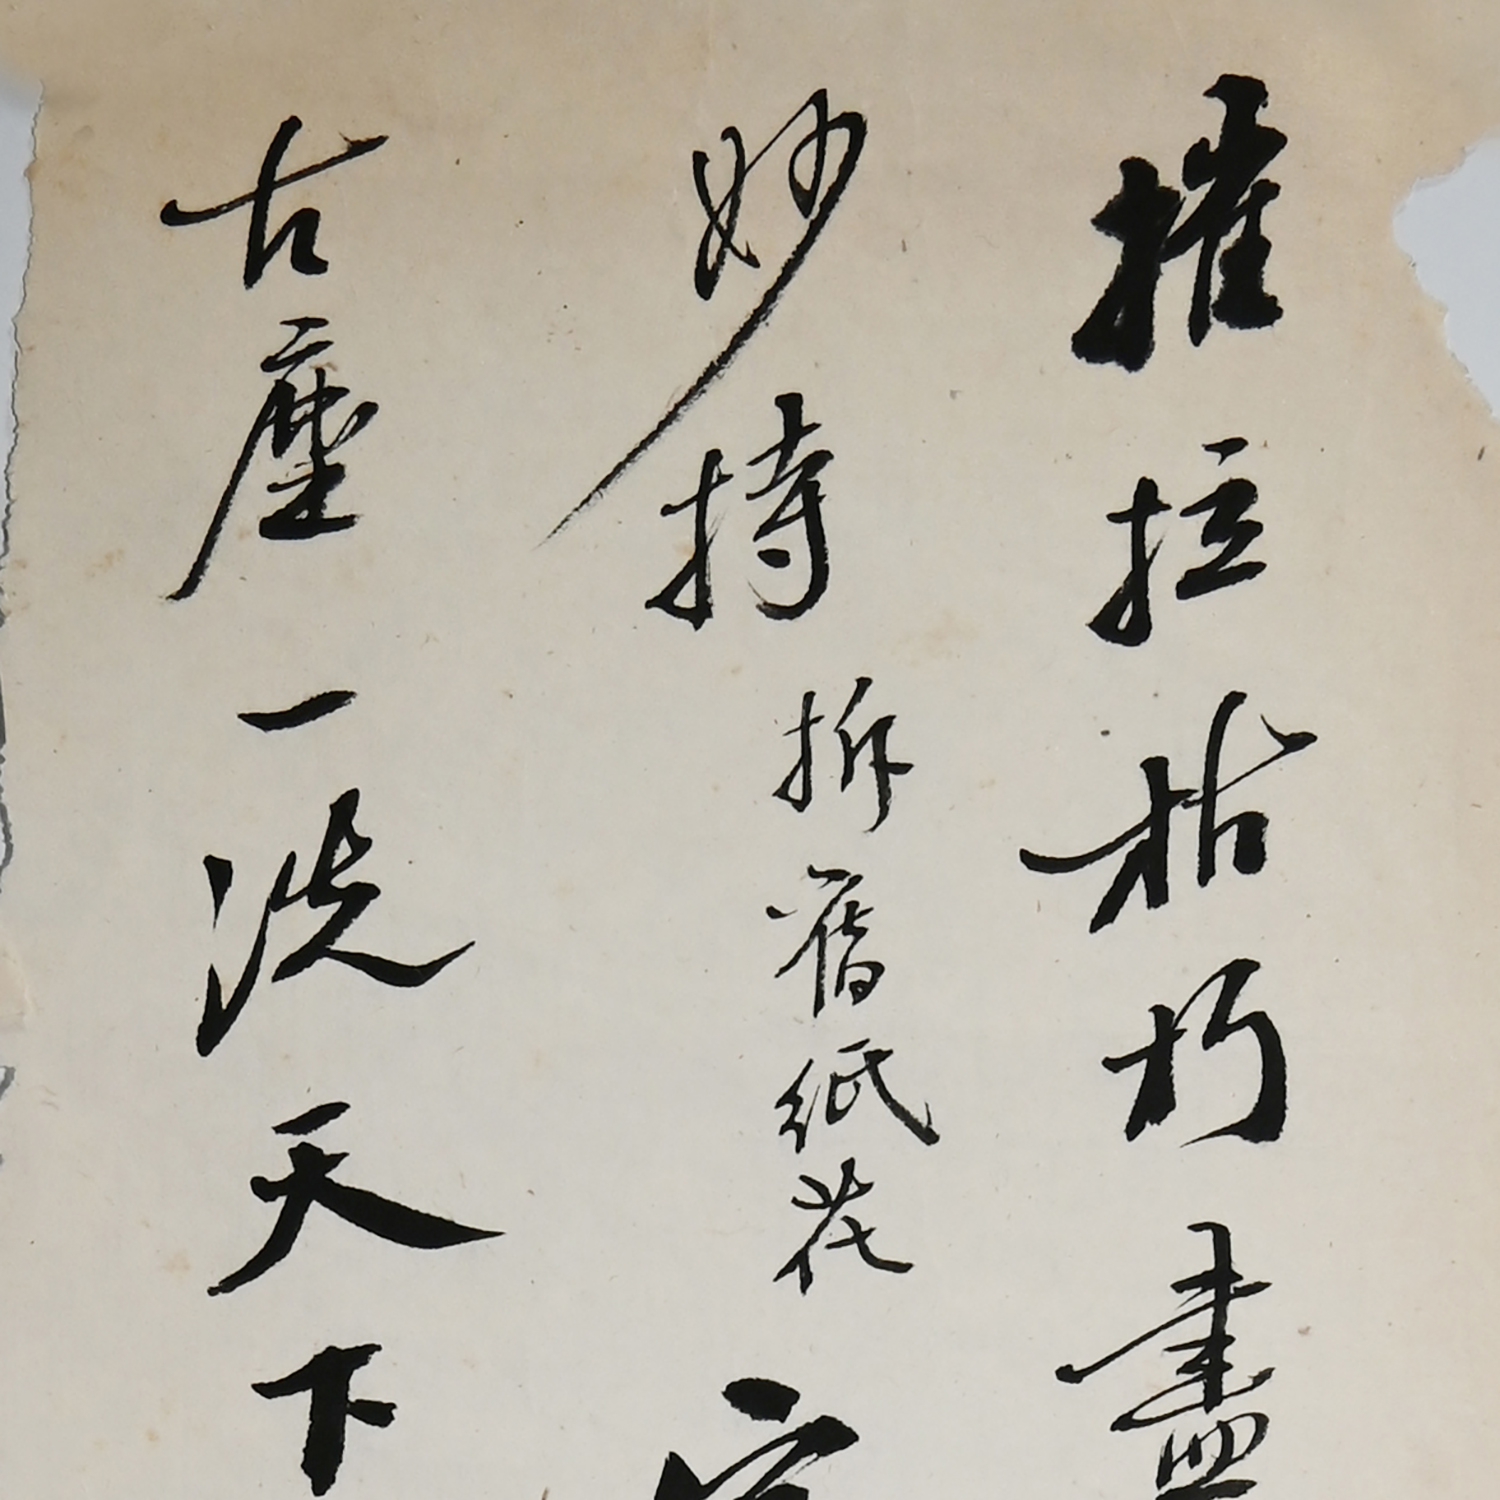 摧拉枯朽盡
妙持拆舊紙花
古塵一洗天下